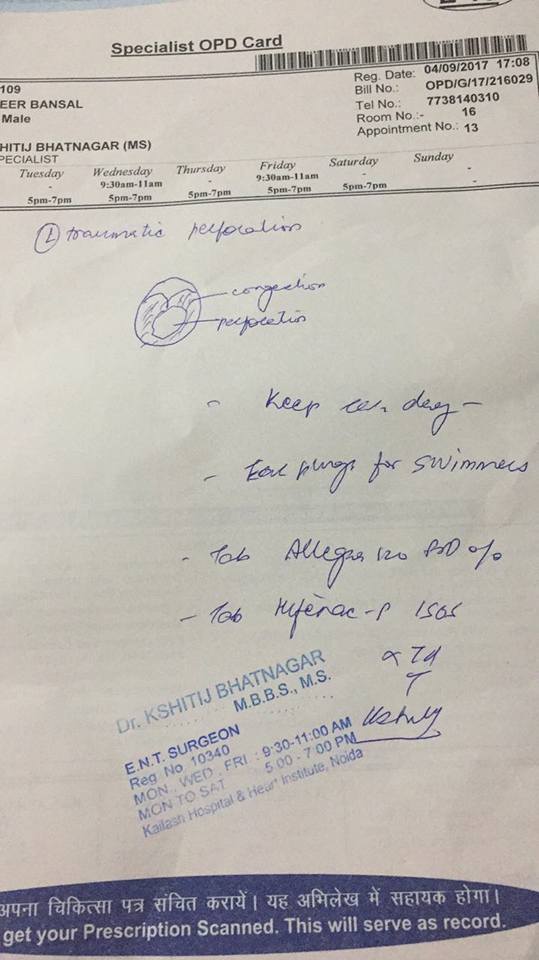 Specialist OPD Card
109
EER BANSAL
Male
Reg. Date: 04/09/2017 17:08
Bill No.: OPD/G/17/216029
Tel No.: 7738140310
Room No.:- 16
Appointment No.: 13
HITIJ BHATNAGAR (MS)
PECIALIST
Tuesday Wednesday Thursday Friday Saturday Sunday
- 9:30am-11am - 9:30am-11am - -
5pm-7pm 5pm-7pm 5pm-7pm 5pm-7pm 5pm-7pm -
(L) traumatic perforation
congestion
perforation
- Keep ear dry -
- Ear plugs for swimmers
- Tab Allegra 120 BD
- Tab Hifenac-P 1 SOS
x 7d
Dr. KSHITIJ BHATNAGAR
M.B.B.S., M.S.
E.N.T. SURGEON
Reg No. 10340
MON, WED, FRI : 9:30-11:00 AM
MON TO SAT 5.00 - 7:00 PM
Kailash Hospital & Heart Institute, Noida
अपना चिकित्सा पत्र संचित करायें। यह अभिलेख में सहायक होगा।
get your Prescription Scanned. This will serve as record.